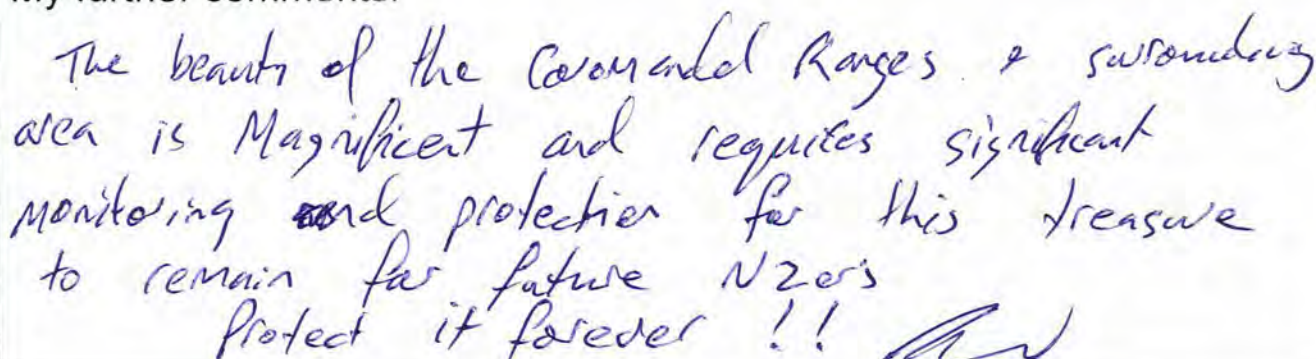 My further comments:
The beauty of the Coromandel Ranges & surrounding
area is Magnificent and requires significant
monitoring and protection for this treasure
to remain for future NZers
Protect it forever !!